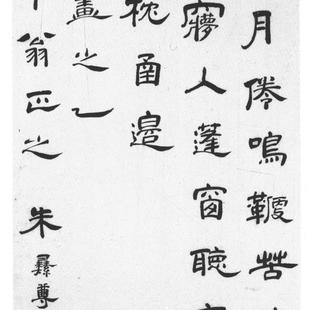 月倦鳴鞭苦
㝱人蓬窗聽
枕函邊
畫之乙
翁正之 朱彝尊